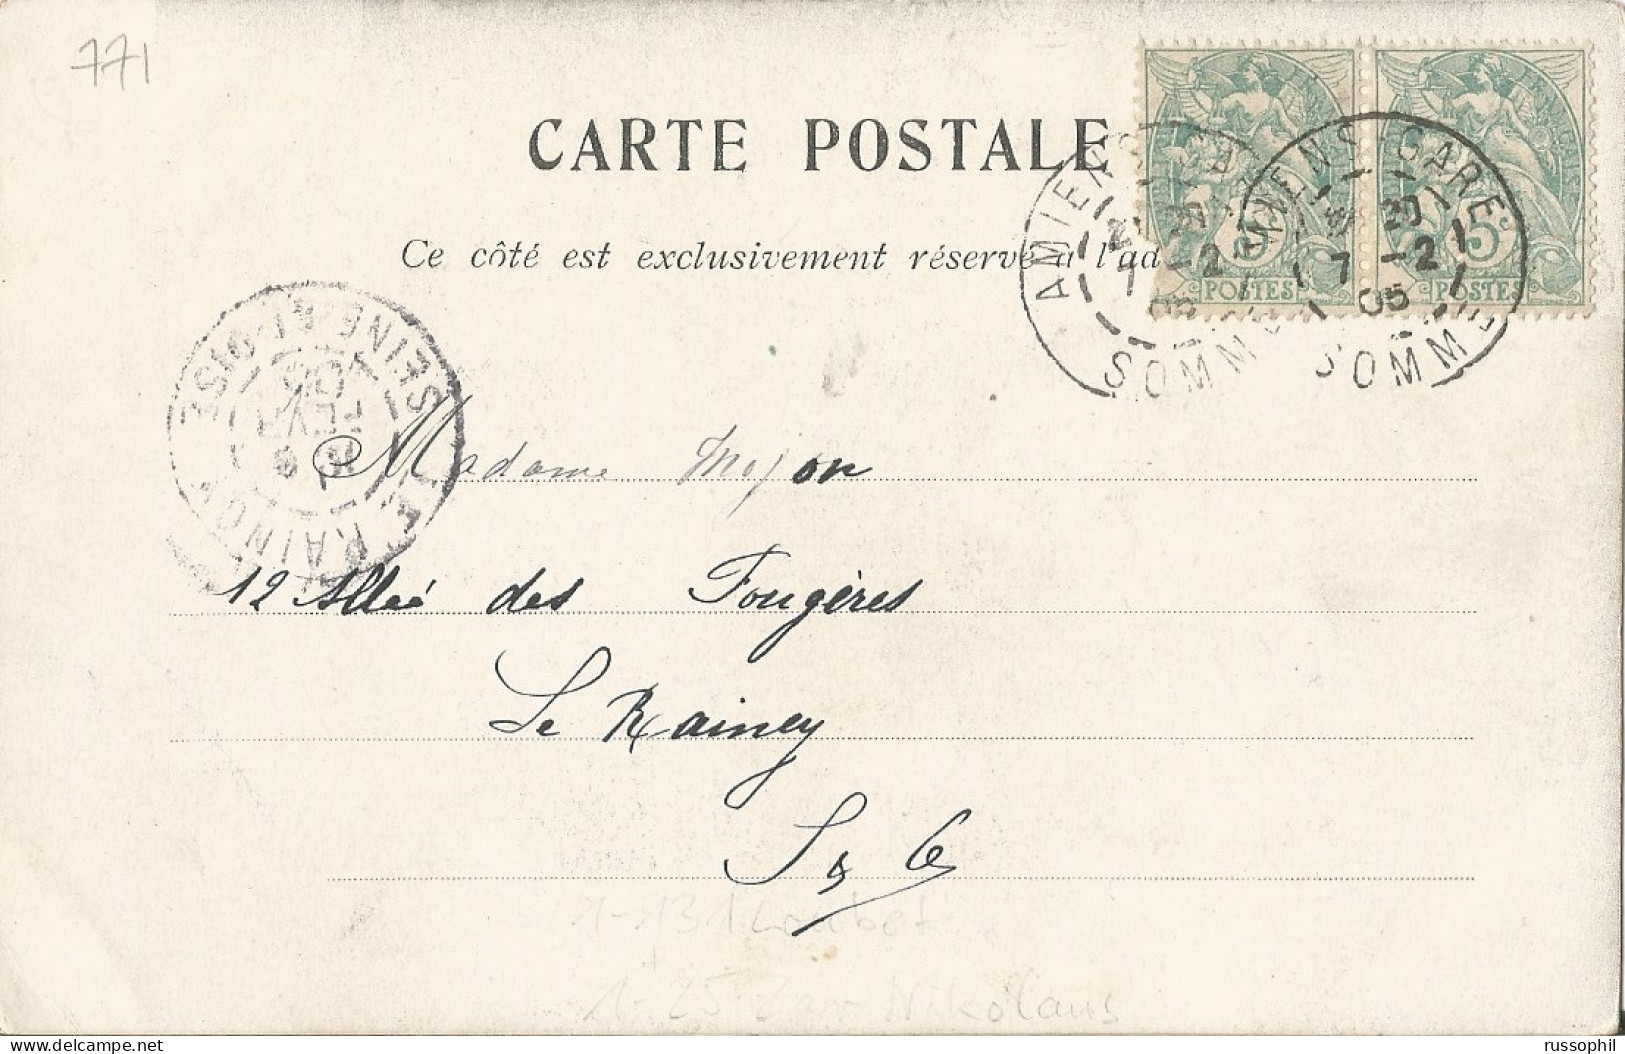 771
CARTE POSTALE
Ce côté est exclusivement réservé à l'ad
5c 5c
POSTES POSTES
AMIENS GARE
7 -2 05
SOMME
AMIENS GARE
7 -2 05
SOMME
SEINE-ET-OISE
FEVR
05
LE RAINCY
Madame Mojon
12 Allée des Fougères
Le Rainey
S & O
1-131 Loubet
+
1-25 Zar Nikolaus
russophil DELCAMPE.NET